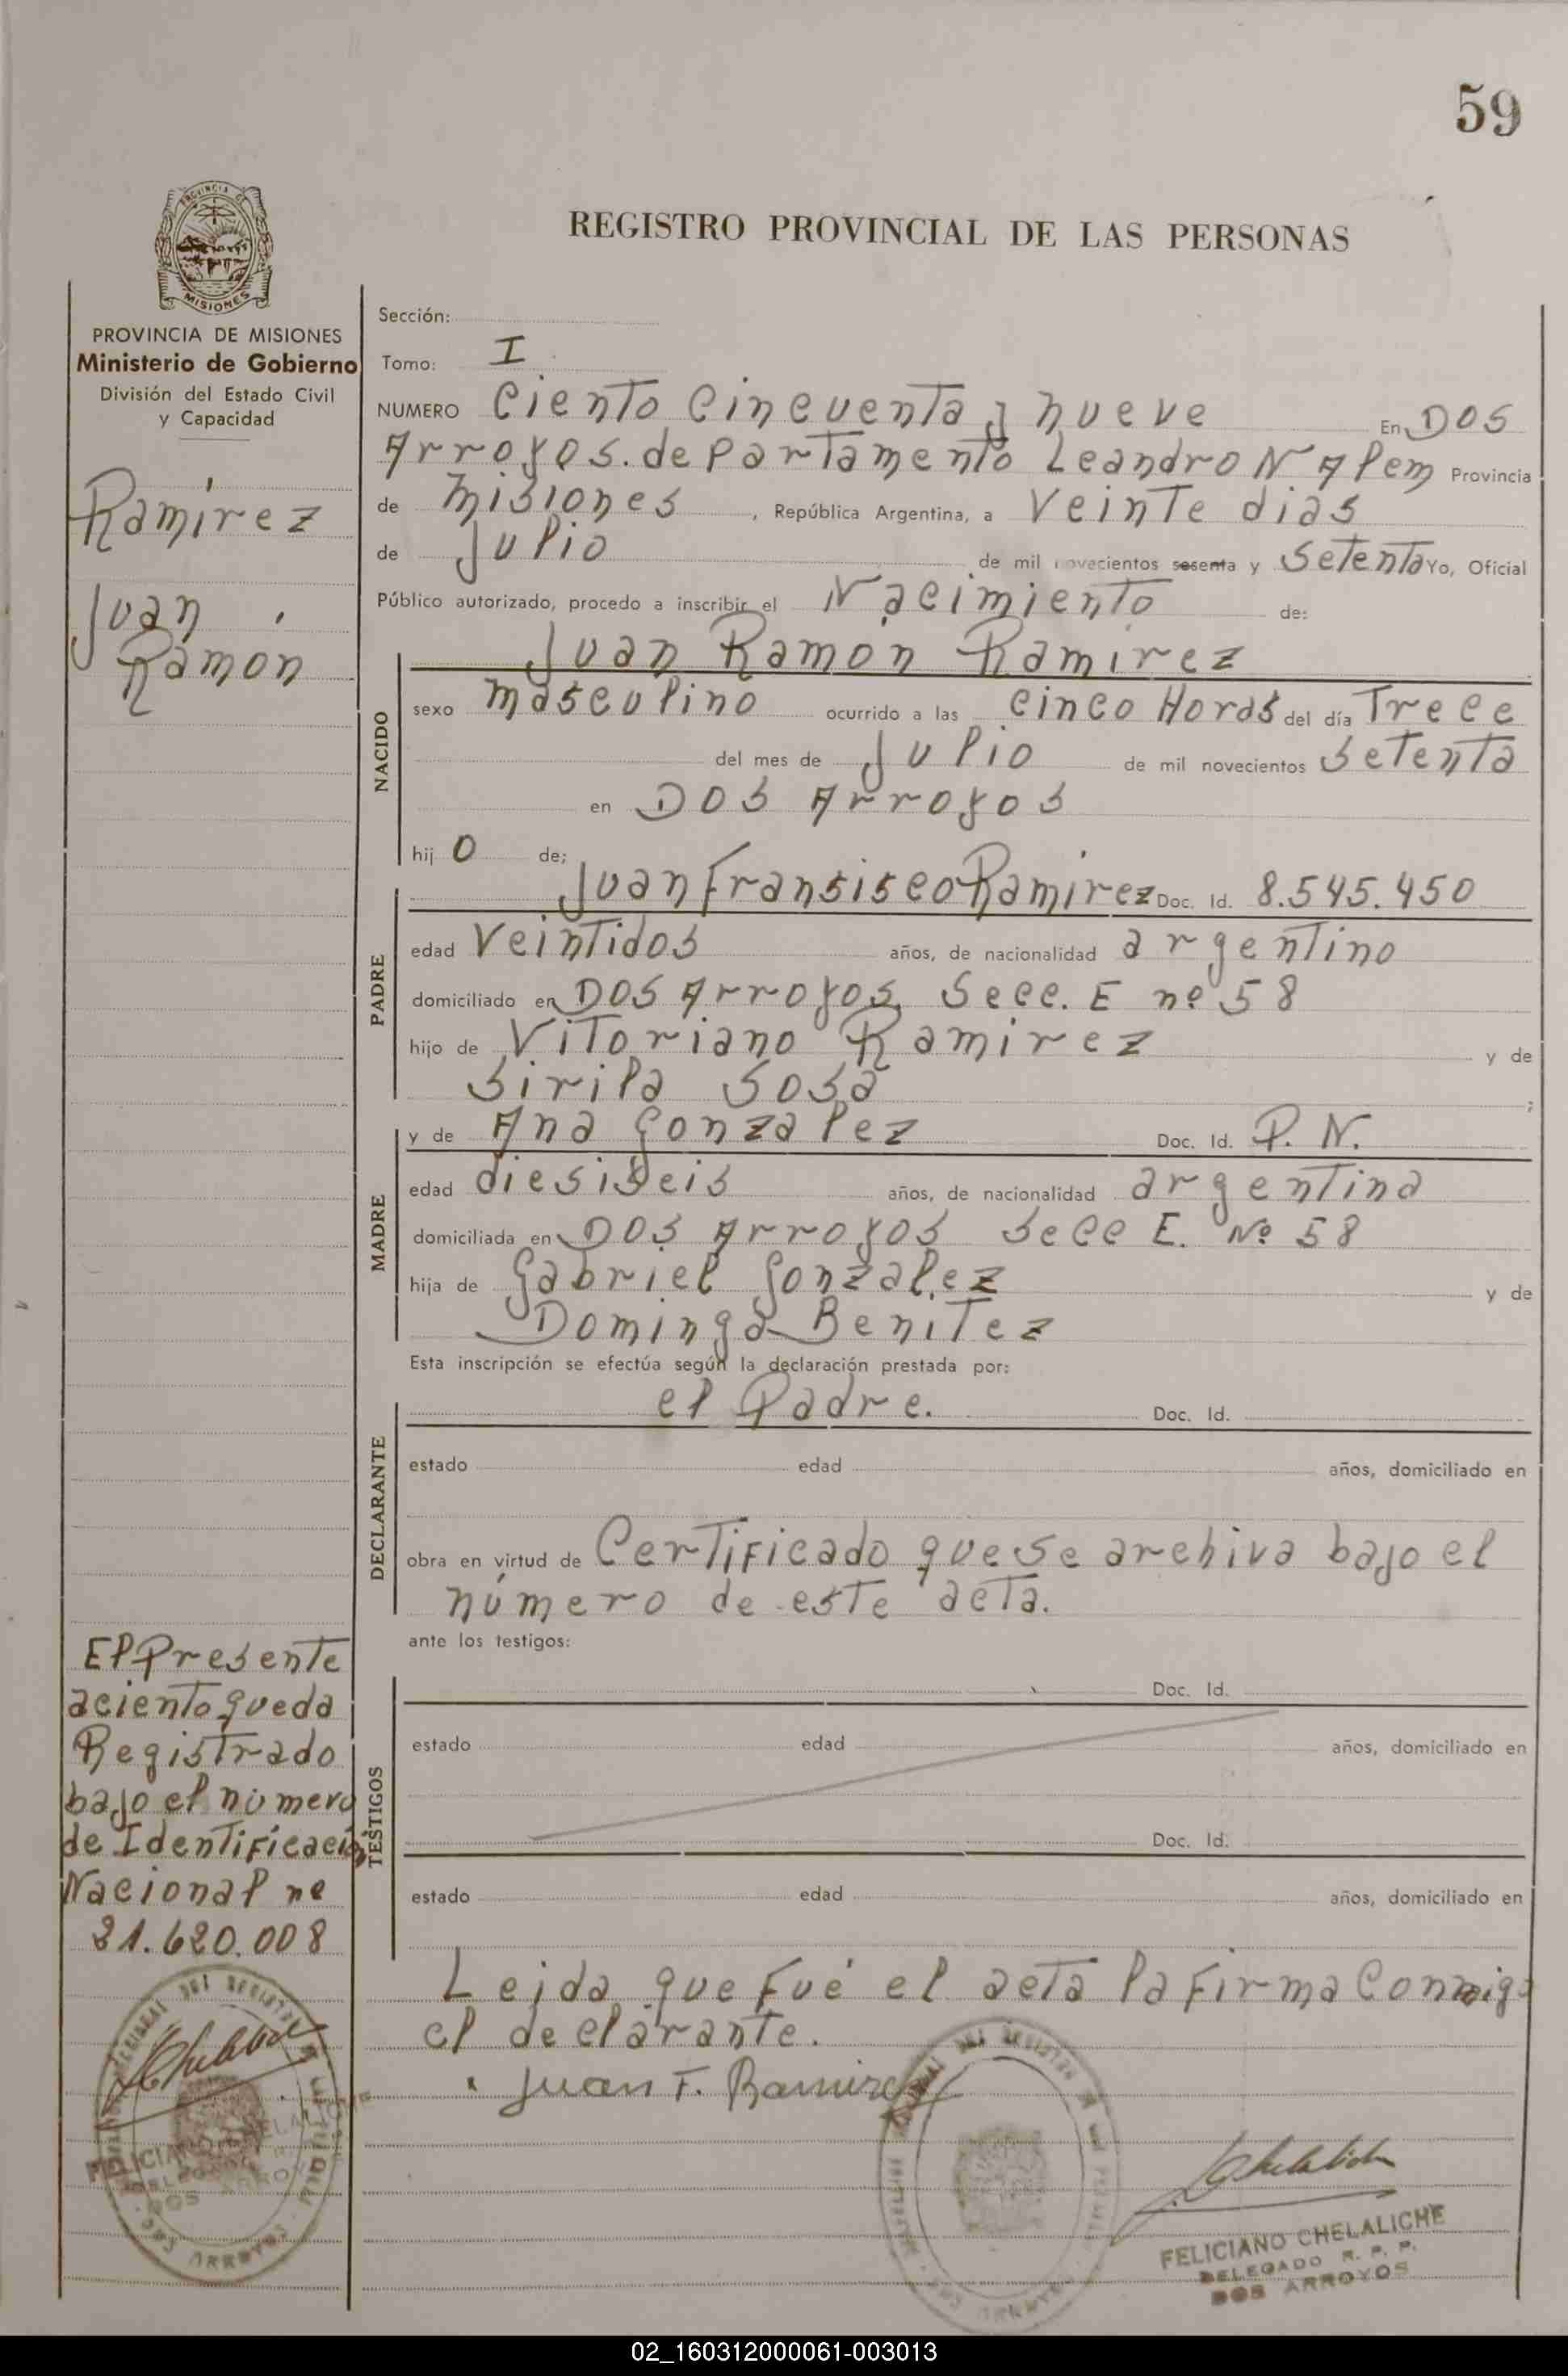 59
REGISTRO PROVINCIAL DE LAS PERSONAS
MISIONES
PROVINCIA DE MISIONES
Ministerio de Gobierno
División del Estado Civil
y Capacidad
Ramírez
Juan
Ramón
Sección:
Tomo: I
NUMERO Ciento Cincuenta y nueve En Dos
Arroyos. departamento Leandro N Alem Provincia
de Misiones, República Argentina, a Veinte dias
de Julio de mil novecientos sesenta y Setenta Yo, Oficial
Público autorizado, procedo a inscribir el Nacimiento de:
NACIDO
Juan Ramón Ramirez
sexo masculino ocurrido a las cinco Horas del día Trece
del mes de Julio de mil novecientos Setenta
en Dos Arroyos
hij o de;
PADRE
Juan Fransisco Ramirez Doc. Id. 8.545.450
edad Veintidos años, de nacionalidad argentino
domiciliado en Dos Arroyos, Secc. E nº 58
hijo de Vitoriano Ramirez y de
Sirila Sosa ;
MADRE
y de Ana Gonzalez Doc. Id. P. N.
edad diesiseis años, de nacionalidad argentina
domiciliada en Dos Arroyos Secc E. Nº 58
hija de Gabriel Gonzalez y de
Dominga Benitez
Esta inscripción se efectúa según la declaración prestada por:
DECLARANTE
el Padre. Doc. Id.
estado edad años, domiciliado en
obra en virtud de Certificado que se archiva bajo el
número de este acta.
ante los testigos:
TESTIGOS
Doc. Id.
estado edad años, domiciliado en
Doc. Id.
estado edad años, domiciliado en
El Presente
aciento queda
Registrado
bajo el número
de Identificación
Nacional nº
21.620.008
Leida que fué el acta la firma Conmigo
el declarante.
Juan F. Ramirez
FELICIANO CHELALICHE
DELEGADO R. P. P.
DOS ARROYOS
02_160312000061-003013